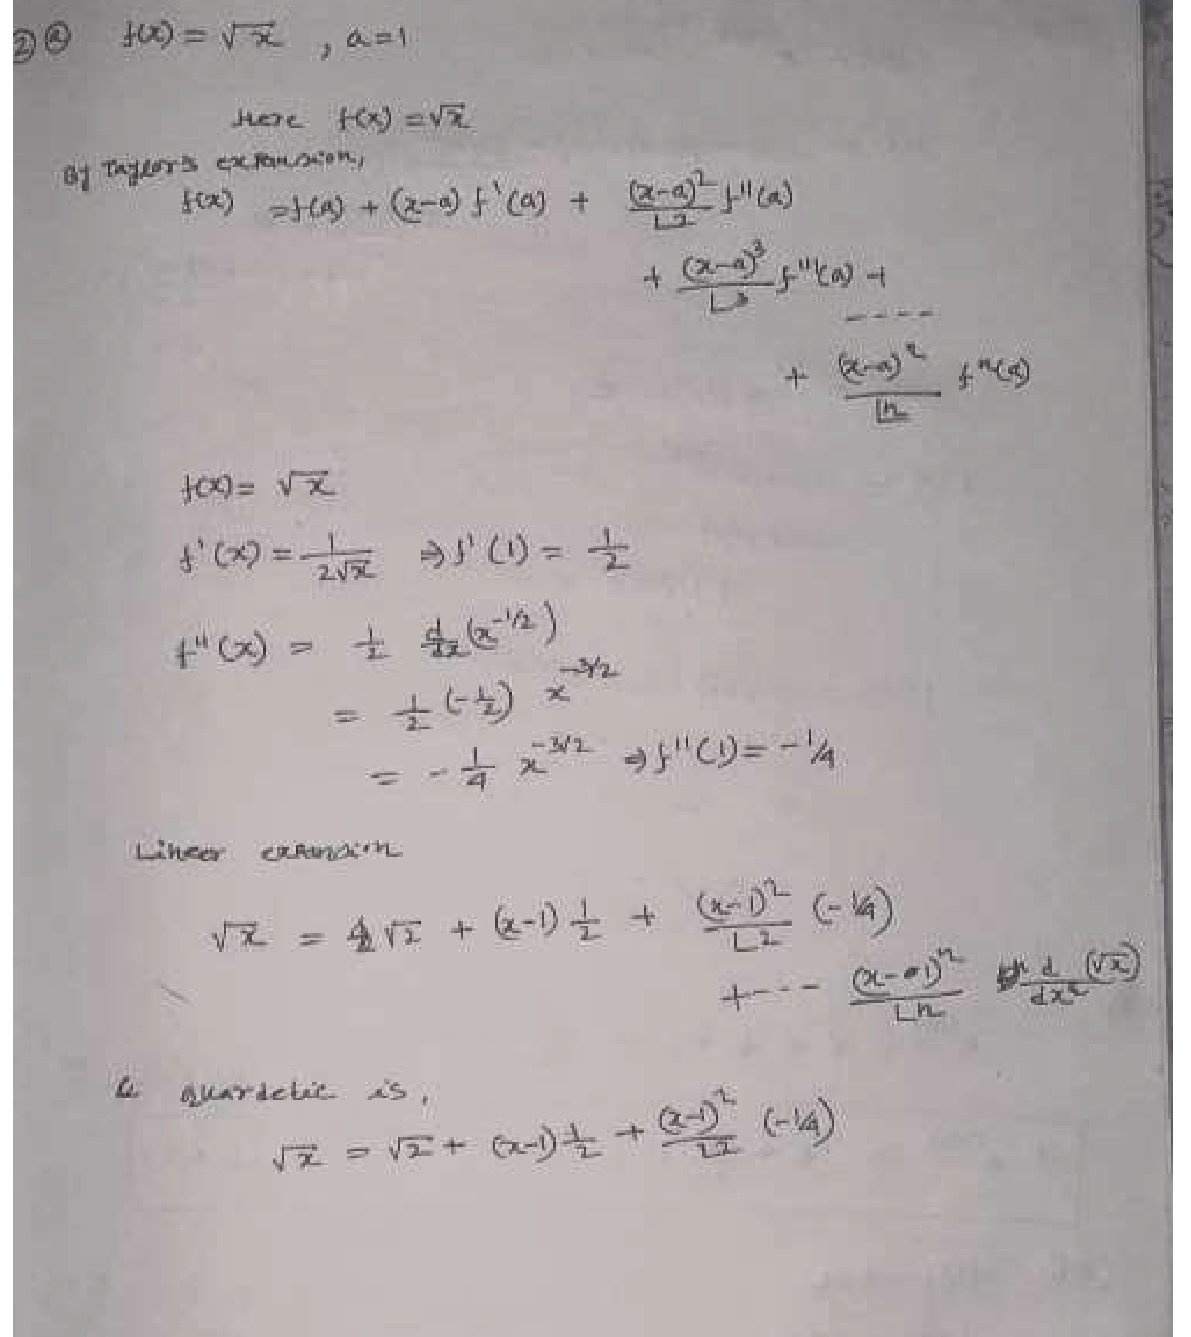 ② ⓐ f(x) = √x , a=1
Here f(x) = √x
By Taylor's expansion,
f(x) = f(a) + (x-a) f'(a) + (x-a)²/⌊2 f''(a)
+ (x-a)³/⌊3 f'''(a) +
----
+ (x-a)ⁿ/⌊n fⁿ(a)
f(x) = √x
f'(x) = 1/2√x ⇒ f'(1) = 1/2
f''(x) = 1/2 d/dx (x^-1/2)
= 1/2 (-1/2) x^-3/2
= - 1/4 x^-3/2 ⇒ f''(1) = -1/4
Linear expansion
√x = √1 + (x-1) 1/2 + (x-1)²/⌊2 (-1/4)
+ --- (x-1)ⁿ/⌊n d/dxⁿ (√x)
& quardetic is,
√x = √1 + (x-1) 1/2 + (x-1)²/⌊2 (-1/4)